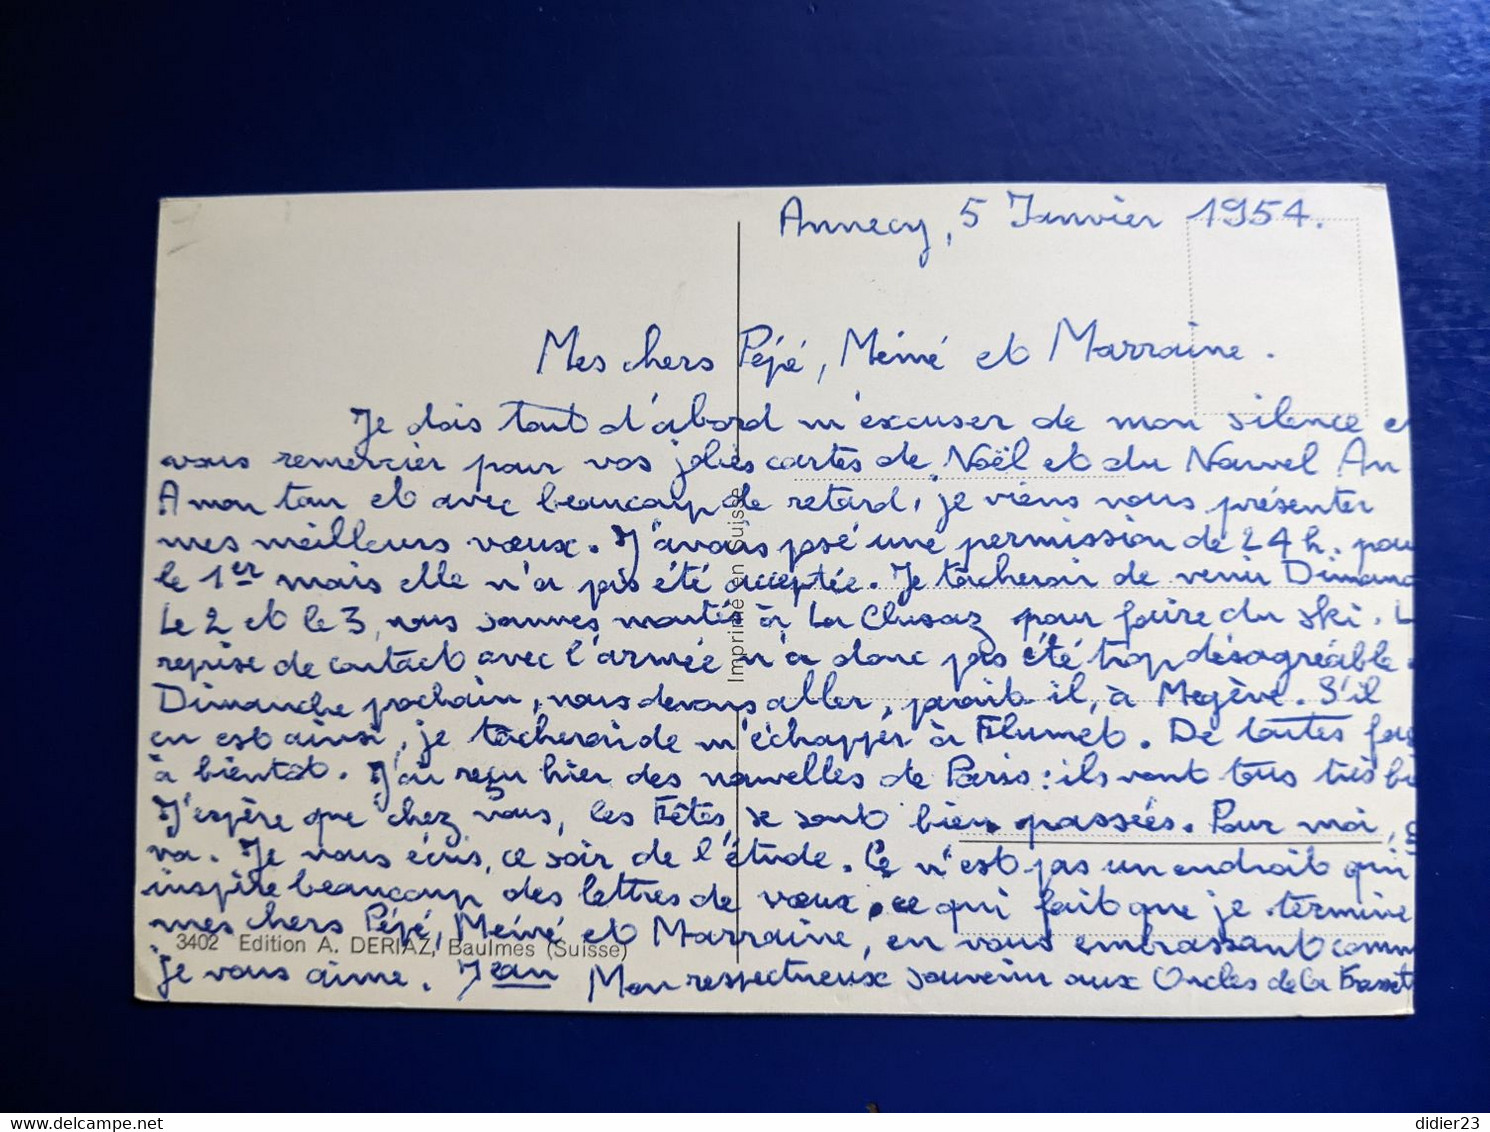 Annecy, 5 Janvier 1954.
Mes chers Pépé, Mémé et Marraine.
Je dois tout d'abord m'excuser de mon silence e
vous remercier pour vos jolies cartes de Noël et du Nouvel An
A mon tour et avec beaucoup de retard, je viens vous présenter
mes meilleurs vœux. J'avais posé une permission de 24 h. pou
le 1er mais elle n'a pas été acceptée. Je tacherai de venir Dimanc
Le 2 et le 3, nous sommes montés à La Clusaz pour faire du ski. L
reprise de contact avec l'armée n'a donc pas été trop désagréable.
Dimanche prochain, nous devons aller, parait-il, à Megève. S'il
en est ainsi, je tacherai de m'échapper à Flumet. De toutes fa
à bientôt. J'ai reçu hier des nouvelles de Paris : ils vont tous très bi
J'espère que chez vous, les Fêtes se sont bien passées. Pour moi, ç
va. Je vous écris, ce soir de l'étude. Ce n'est pas un endroit qui
inspire beaucoup des lettres de vœux, ce qui fait que je termine
mes chers Pépé, Mémé et Marraine, en vous embrassant comm
je vous aime. Jean Mon respectueux souvenir aux Oncles de la
Imprimé en Suisse
3402 Edition A. DERIAZ, Baulmes (Suisse)
didier23